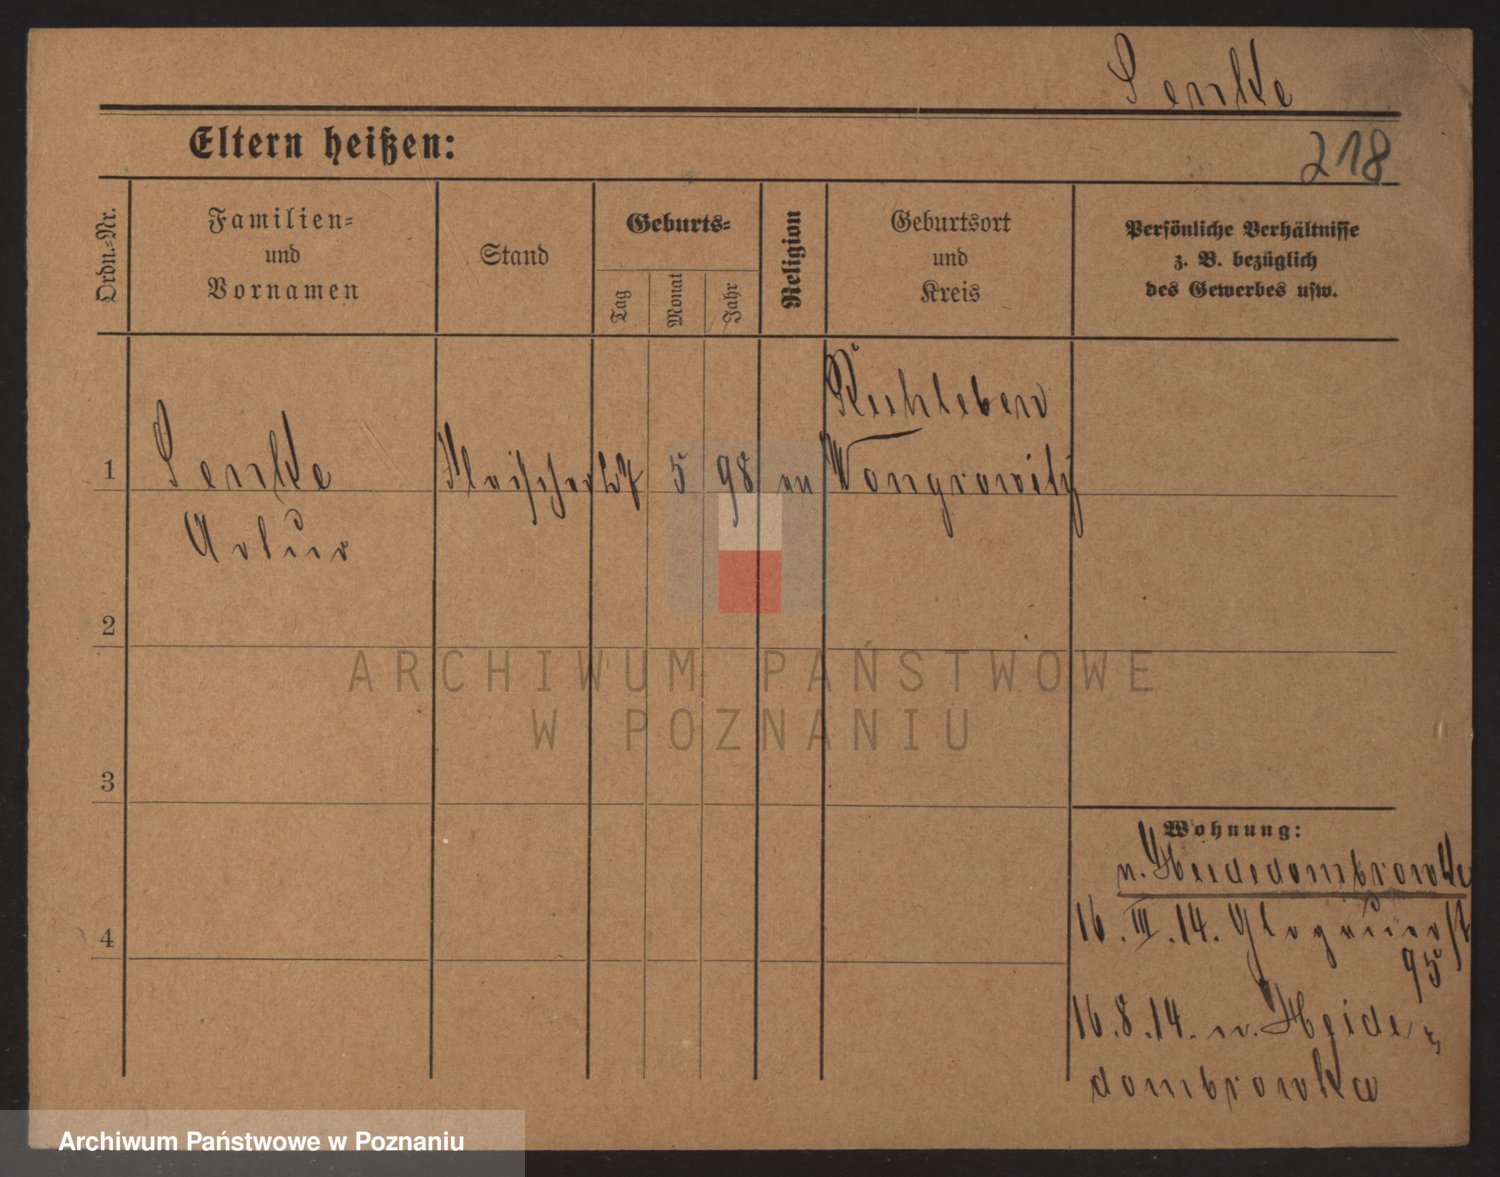 Senke
Eltern heißen:
218
Ordn.-Nr.
Familien-
und
Vornamen
Stand
Geburts-
Tag
Monat
Jahr
Religion
Geburtsort
und
Kreis
Persönliche Verhältnisse
z. B. bezüglich
des Gewerbes usw.
Rushleben
1 Senke Fleischer 27 5 98 ev Wongrowitz
Artur
2
3
4
Wohnung:
n. Heidedombrowka
16. III. 14. Glogauerst
95
16. 8. 14. n. Heide-
dombrowka
ARCHIWUM PAŃSTWOWE
W POZNANIU
Archiwum Państwowe w Poznaniu